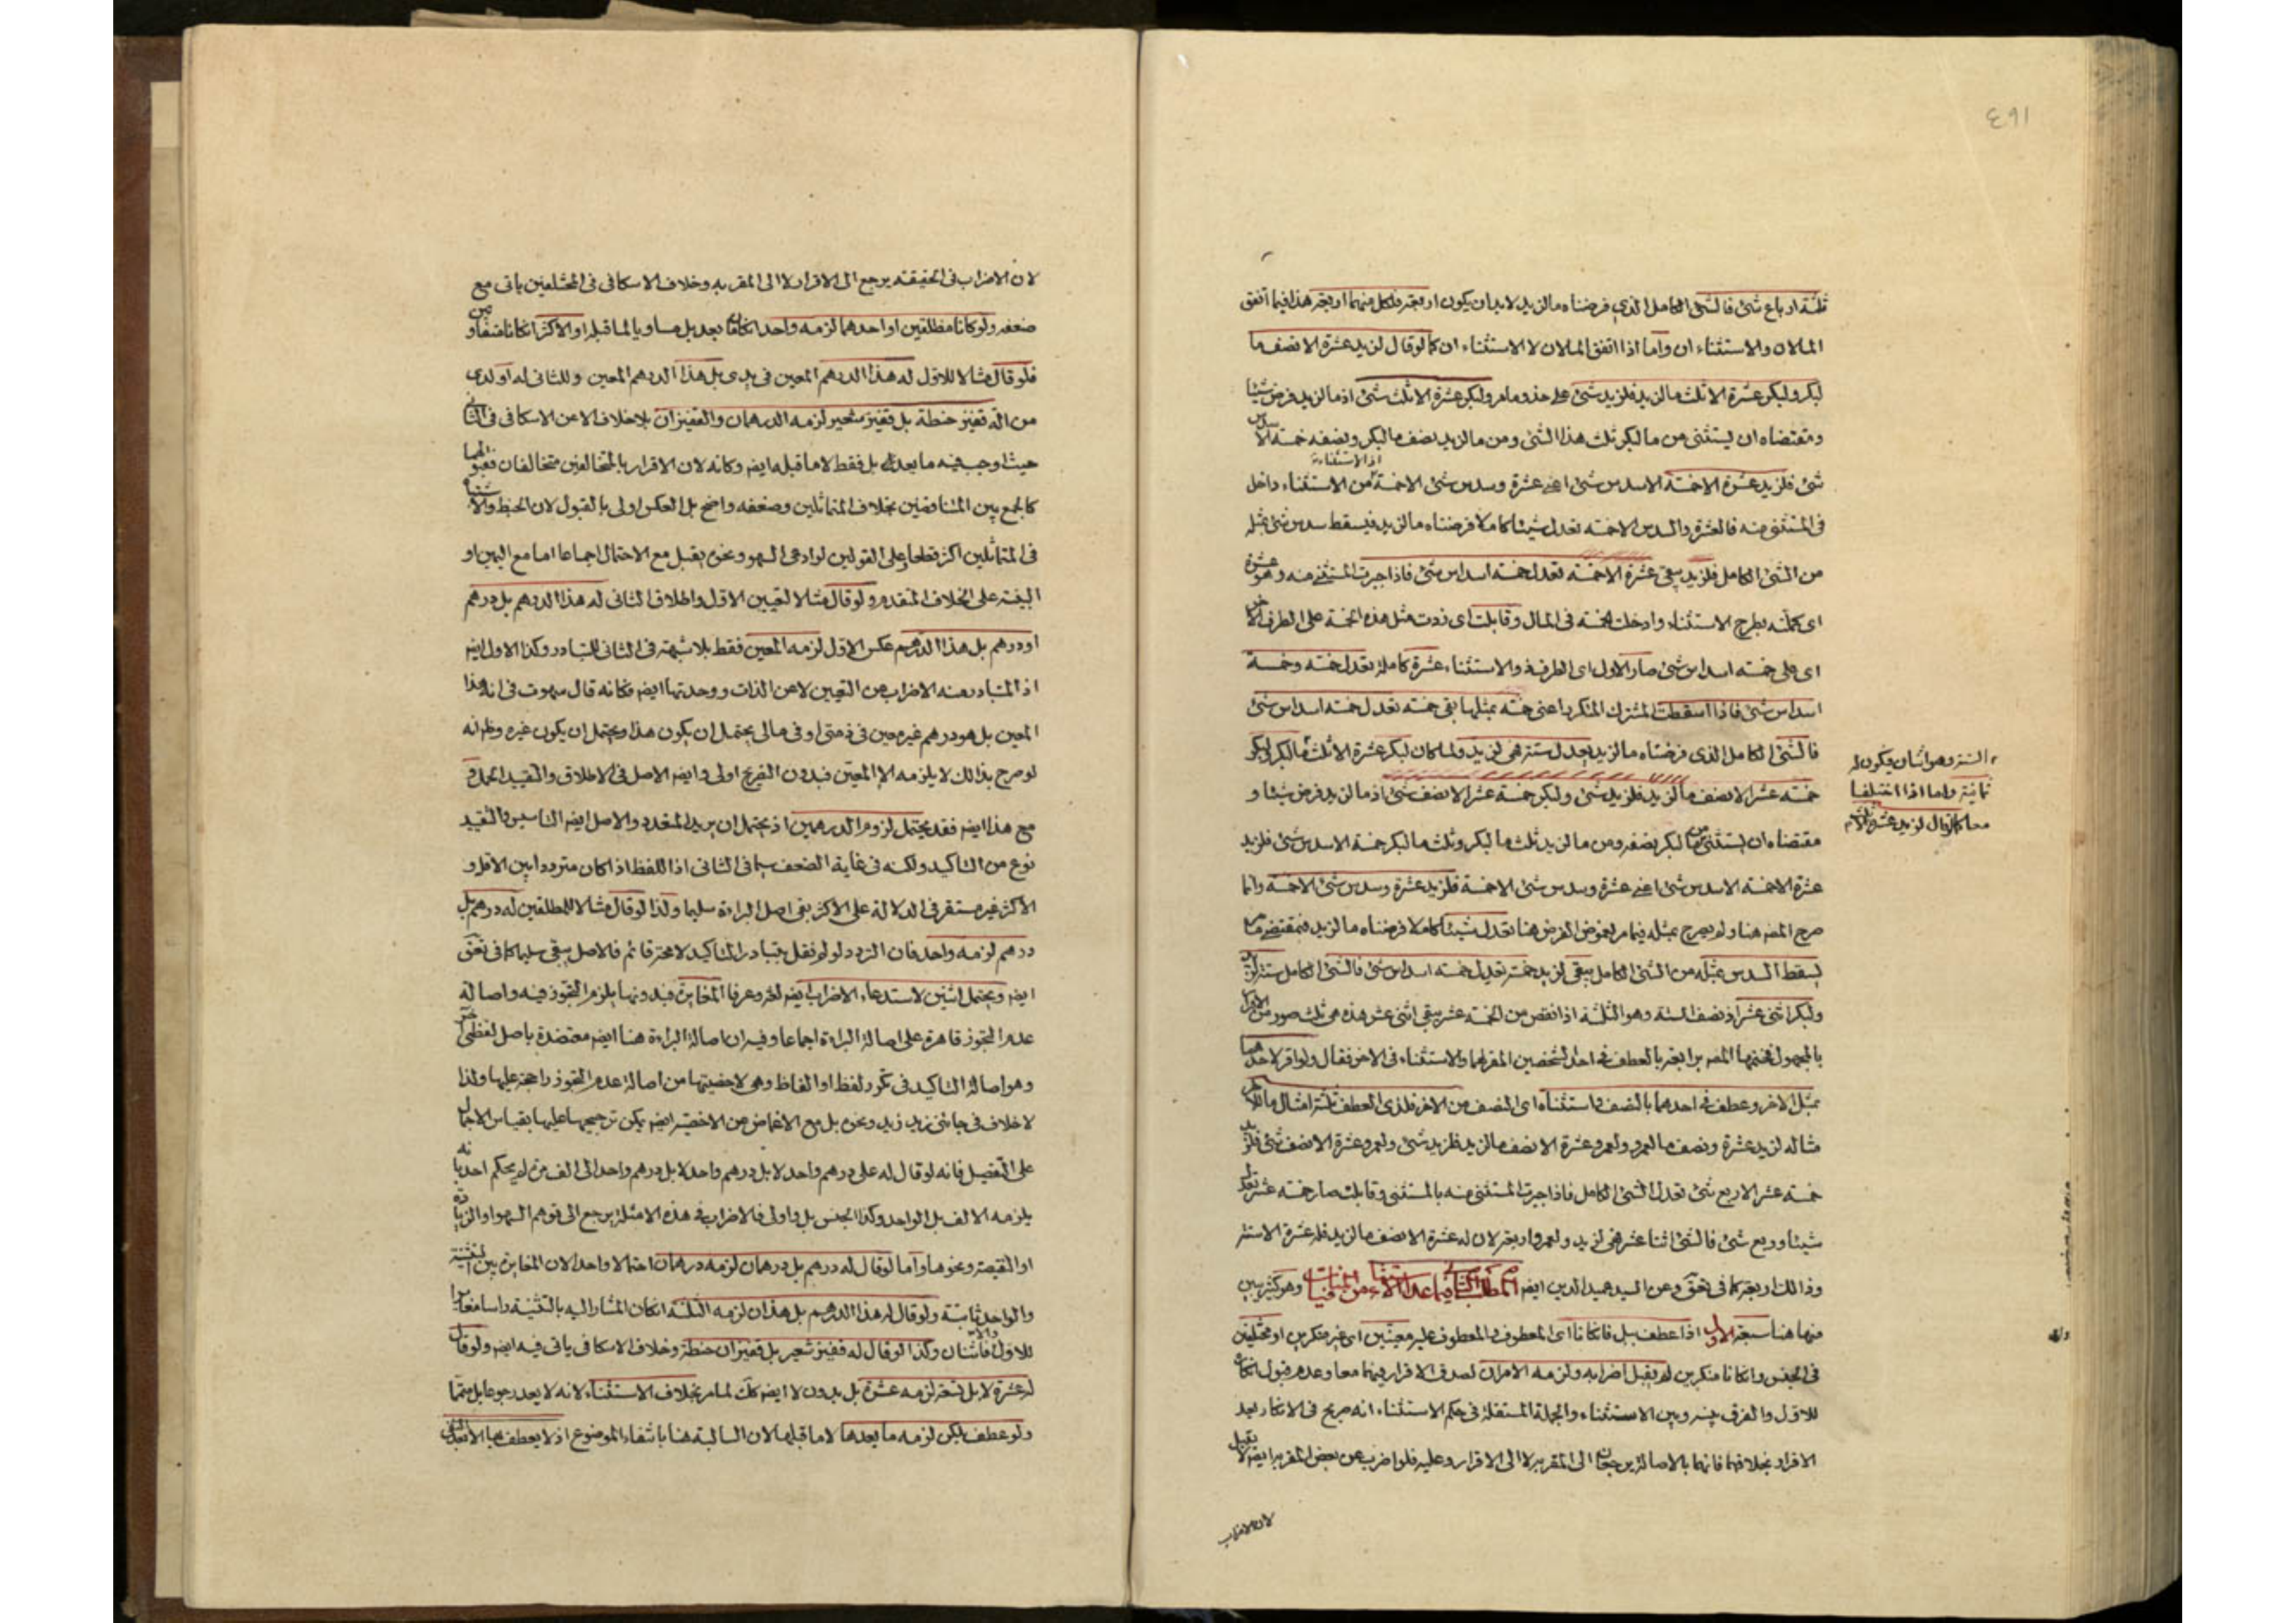 ٤٩١
ثلثة ارباع شئ فالشئ الكامل الذي فرضناه مالزيد لابد ان يكون اربعة فلكل منهما اربعة هذا فيما اتفق
المالان والاستثناء ان واما اذا اتفق المالان لا الاستثناء ان كما لو قال لزيد عشرة الا نصف ما
لبكر ولبكر عشرة الا ثلث مالزيد فلزيد شئ على حذو مامر ولبكر عشرة الا ثلث شئ اذ مالزيد فرض شيئا
ومقتضاه ان يستثنى من مالبكر ثلث هذا الشئ ومن مالزيد نصف مالبكر ونصفه خمسة الا سدس
اذ الاستثناء
شئ فلزيد عشرة الا خمسة الا سدس شئ اعنى عشرة وسدس شئ الا خمسة من الاستثناء داخل
فى المستثنى منه فالعشرة والسدس الا خمسة تعدل شيئا كاملا فرضناه مالزيد فيسقط سدس شئ بمثله
من الشئ الكامل فلزيد يبقى عشرة الا خمسة تعدل خمسة اسداس شئ فاذا جبرت المستثنى منه وهو عشرة
اى كملته بطرح الاستثناء وادخلت خمسة فى المال وقابلت اى زدت مثل هذه الخمسة على الطرف الاخر
اى على خمسة اسداس شئ صار الاول اى الطرف ذو الاستثناء عشرة كاملة تعدل خمسة وخمسة
اسداس شئ فاذا اسقطت المشترك المتكرر اعنى خمسة بمثلها بقى خمسة تعدل خمسة اسداس شئ
فالشئ الكامل الذى فرضناه مالزيد يعدل ستة هى لزيد ولما كان لبكر عشرة الا ثلث مالبكر لبكر
الستة وهو اثنان فيكون له
ثمانية واما اذا اختلفا
معا كما لو قال لزيد عشرة الا ثلث
خمسة عشر الا نصف مالزيد فلزيد شئ ولبكر خمسة عشر الا نصف شئ اذ مالزيد فرض شيئا و
مقتضاه ان يستثنى من مالبكر نصفه ومن مالزيد ثلث مالبكر وثلث مالبكر خمسة الا سدس شئ فلزيد
عشرة الا خمسة الا سدس شئ اعنى عشرة وسدس شئ الا خمسة فلزيد عشرة وسدس شئ الا خمسة وانما
صرح المصه هنا ولم يصرح بمثله فيما مر لغموض الفرض هنا تعدل شيئا كاملا فرضناه مالزيد فبمقتضى ما
يسقط السدس بمثله من الشئ الكامل يبقى لزيد خمسة تعديل خمسة اسداس شئ فالشئ الكامل ستة لزيد
ولبكر اثنى عشر اذ نصف الستة وهو الثلثة اذا نقص من الخمسة عشر يبقى اثنى عشر هذه هى ثلث صور من الاقرار
بالمجهول ضمنها المصه برابعة بالعطف فى احد الشخصين المقر لهما والاستثناء فى الاخر فقال ولو اقر لاحدهما
بمثل الاخر وعطف فى احدهما بالنصف واستثناه اى النصف من الاخر فلذى العطف ثلثة امثال ما للاخر
مثاله لزيد عشرة ونصف مالعمرو ولعمرو عشرة الا نصف مالزيد فلزيد شئ ولعمرو عشرة الا نصف شئ فلزيد
خمسة عشر الا ربع شئ تعدل الشئ الكامل فاذا جبرت المستثنى منه بالمستثنى وقابلت صار خمسة عشر تعدل
شيئا وربع شئ فالشئ اثنا عشر هى لزيد ولعمرو اربعة لان له عشرة الا نصف مالزيد فله عشرة الا ستة
وذالك اربعة كما فى تعق وعن السيد عميد الدين ايضه المطلب الثانى فيما عدا الاستثناء من المنافيات وهو كثير بين
منها هنا سبعة الاول اذا عطف ببل فان كانا اى المعطوف والمعطوف عليه معينين اى غير منكرين او مختلفين
فى الجنس وان كانا منكرين لم يقبل اضرابه ولزمه الامران لصدق الاقرار بهما معا وعدم قبول انكاره
للاول والفرق بينه وبين الاستثناء والجملة المستقلة فى حكم الاستثناء انه صريح فى الانكار بعد
الاقرار بخلافهما فانهما بالاصالة يرجعان الى المقر به لا الى الاقرار وعليه فلو اضرب عن بعض المقر به ايضه لا يقبل
لان الاضراب
لان الاضراب فى الحقيقة يرجع الى الاقرار لا الى المقر به وخلاف الاسكافى فى المختلفين ياتى مع
ضعفه ولو كانا مطلقين او احدهما لزمه واحد ان كان ما بعد بل مساويا لما قبله او الاكثر ان كانا مختلفين
فلو قال مثالا للاول له هذا الدرهم المعين فى يدى بل هذا الدرهم المعين وللثانى له او لدى
من الله قفيز حنطة بل قفيز شعير لزمه الدرهمان والقفيزان بلا خلاف الا عن الاسكافى فى الثانى
حيث اوجب فيه ما بعد بل فقط لا ما قبله ايضه وكانه لان الاقرار بالمتخالفين متخالفان فقبولهما
كالجمع بين المتناقضين بخلاف المتماثلين وضعفه واضح بل العكس اولى بالقبول لان الخبط والاشتباه
فى المتماثلين اكثر قطعا وعلى القولين لو ادعى السهو ونحوه يقبل مع الاحتمال اجماعا اما مع اليمين او
البينة على الخلاف المتقدم ولو قال مثالا لتعيين الاول واطلاق الثانى له هذا الدرهم بل درهم
او درهم بل هذا الدرهم عكس الاول لزمه المعين فقط بلا شبهة فى الثانى للتبادر وكذا الاول ايضه
اذ المتبادر منه الاضراب عن التعيين لا عن الذات ووحدتها ايضه فكانه قال سهوت فى انه هذا
المعين بل هو درهم غير معين فى ذمتى او فى مالى يحتمل ان يكون هذا ويحتمل ان يكون غيره وظم انه
لو صرح بذالك لا يلزمه الا المعين فبدون التصريح اولى وايضه الاصل فى الاطلاق والتقييد الحمل و
مع هذا ايضه فقد يحتمل لزوم الدرهمين اذ يحتمل ان يريد المتعدد والاصل ايضه التاسيس والتقييد
نوع من التاكيد ولكنه فى غاية الضعف سيما فى الثانى اذا اللفظ اذا كان مترددا بين الاقل و
الاكثر غير مستقر فى الدلالة على الاكثر بقى اصل البراءة سليما ولذا لو قال مثالا للمطلقين له درهم بل
درهم لزمه واحد فان التردد لو لم نقل بتبادر التاكيد لا محة قائم فالاصل يبقى سليما كما فى تعق
ايضه ويحتمل اثنين لاستدعاء الاضراب ايضه لغة وعرفا المغايرة فبدونها يلزم التجوز فيه واصالة
عدم التجوز قاهرة على اصالة البراءة اجماعا وفيه ان اصالة البراءة هنا ايضه معتضدة باصل لفظى اخر
وهو اصالة التاكيد فى تكرر لفظ او الفاظ وهى لاخصيتها من اصالة عدم التجوز راجحة عليها ولذا
لا خلاف فى جائنى زيد زيد ونحوه بل مع الاغماض عن الاخصية ايضه يمكن ترجيحها عليها بقياس الاجمال
على التفصيل فانه لو قال له على درهم واحد لا بل درهم واحد لا بل درهم واحد الى الف مرة لم يحكم احد بانه
يلزمه الالف بل الواحد وكذا الجنس بل واولى فالاضراب فى هذه الامثلة يرجع الى توهم السهو او الزيادة
او النقيصة ونحوها واما لو قال له درهم بل درهمان لزمه درهمان احتمالا واحدا لان المغايرة بين التثنية
والواحد ثابتة ولو قال له هذا الدرهم بل هذان لزمه الثلثة ان كان المشار اليه بالتثنية راسا مغايرا
للاول والا فاثنان وكذا لو قال له قفيز شعير بل قفيزان حنطة وخلاف الاسكافى ياتى فيه ايضه ولو قال
له عشرة لا بل تسعة لزمه عشرة بل بدون لا ايضه كك لما مر بخلاف الاستثناء لانه لا يعد رجوعا بل متمما
ولو عطف بلكن لزمه ما بعدها لا ما قبلها لان السالبة هنا بانتفاء الموضوع اذ لا يعطف بها الا بعد النفى